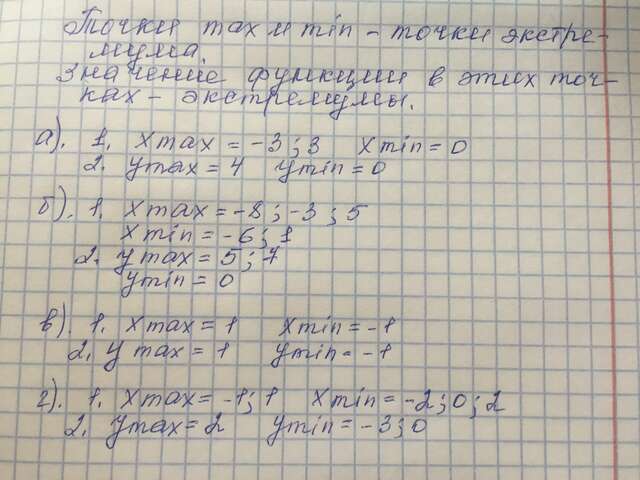 Точки max и min - точки экстре-
мума.
Значение функции в этих точ-
ках - экстремумы.
а). 1. Xmax = -3; 3 Xmin = 0
2. ymax = 4 ymin = 0
б). 1. Xmax = -8; -3; 5
Xmin = -6; 1
2. ymax = 5; 7
ymin = 0
в). 1. Xmax = 1 Xmin = -1
2. ymax = 1 ymin = -1
г). 1. Xmax = -1; 1 Xmin = -2; 0; 2
2. ymax = 2 ymin = -3; 0